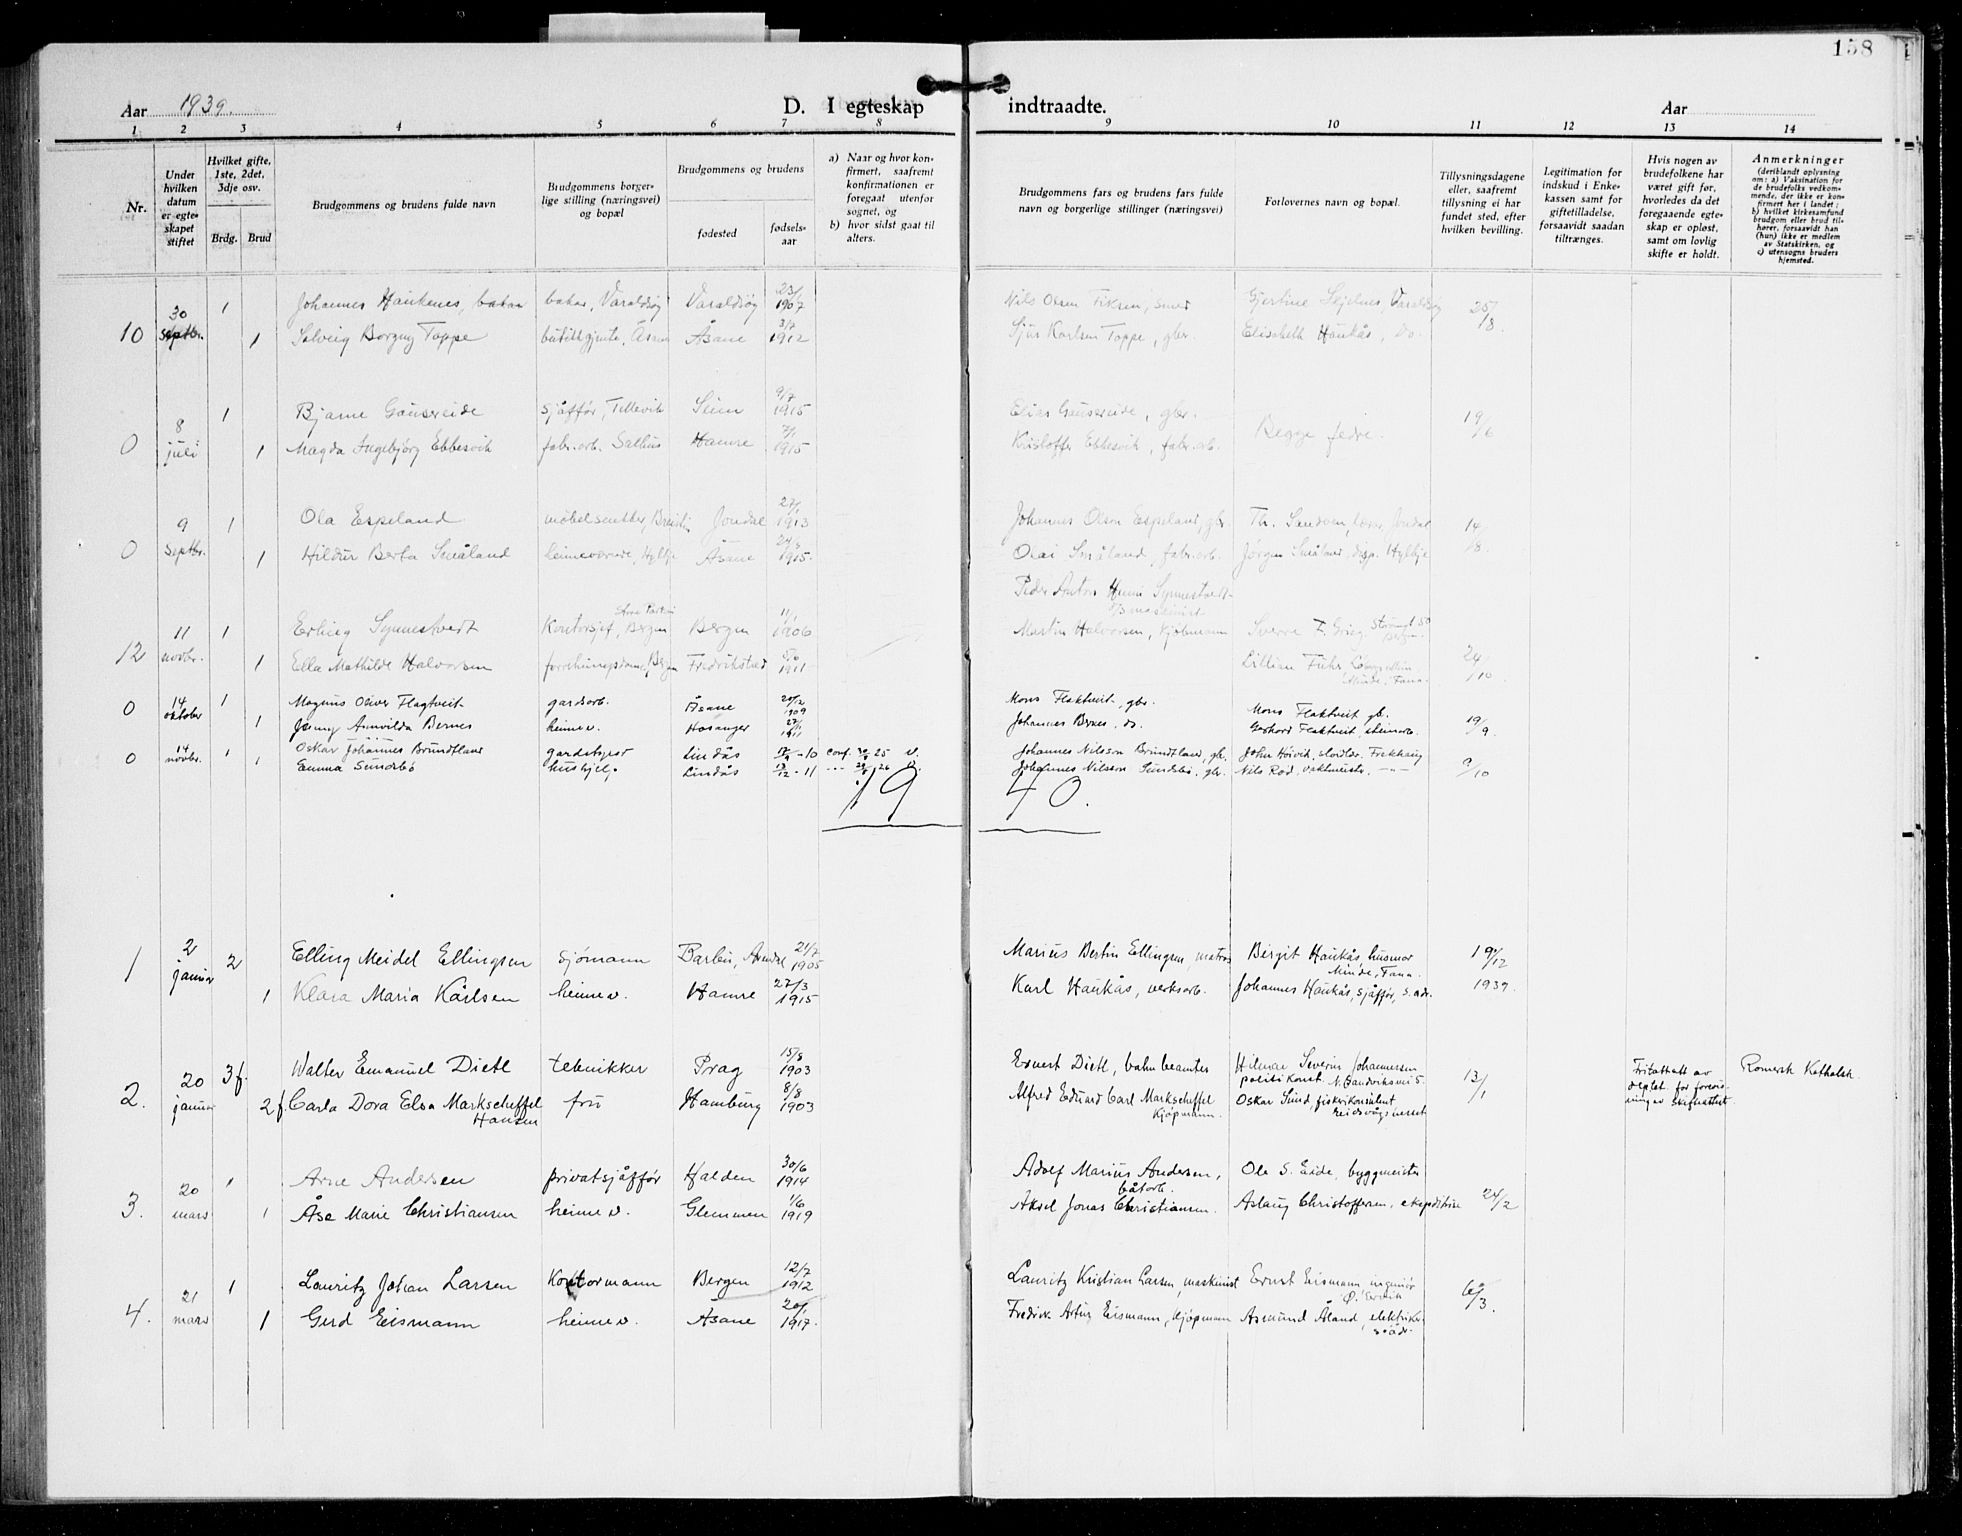 158
Aar 1939. D. I egteskap indtraadte. Aar
1 2 3 4 5 6 7 8 9 10 11 12 13 14
Nr.
Under hvilken datum er egteskapet stiftet
Hvilket gifte, 1ste, 2det, 3dje osv.
Brdg. Brud
Brudgommens og brudens fulde navn
Brudgommens borgerlige stilling (næringsvei) og bopæl
Brudgommens og brudens
fødested
fødselsaar
a) Naar og hvor konfirmert, saafremt konfirmationen er foregaat utenfor sognet, og
b) hvor sidst gaat til alters.
Brudgommens fars og brudens fars fulde navn og borgerlige stillinger (næringsvei)
Forlovernes navn og bopæl.
Tillysningsdagene eller, saafremt tillysning ei har fundet sted, efter hvilken bevilling.
Legitimation for indskud i Enkekassen samt for giftetilladelse, forsaavidt saadan tiltrænges.
Hvis nogen av brudefolkene har været gift før, hvorledes da det foregaaende egteskap er opløst, samt om lovlig skifte er holdt.
Anmerkninger
(deriblandt oplysning om: a) Vaksination for de brudefolks vedkommende, der ikke er konfirmert her i landet; b) hvilket kirkesamfund brudgom eller brud tilhører, forsaavidt han (hun) ikke er medlem av Statskirken, og c) utensogns bruders hjemsted.
30 1 Johannes Haukenes, bakar bakar, Varaldsøy Varaldsøy 23/1 1907 Nils Olsen Fiksen, smed Gjertine Skjelnes, Varaldsøy 25/8.
10 septbr. 1 Solveig Borgny Toppe butikkgjente, Åsane Åsane 3/7 1912 Sjur Karlsen Toppe, gbr. Elisabeth Haukås, do.
8 1 Bjarne Gausereide sjåffør, Tellevik Seim 9/7 1915 Elias Gausereide, gbr. Begge fedre. 19/6
0 juli 1 Magda Ingebjørg Ebbesvik fabr.arb. Salhus Hamre 7/1 1915 Kristoffer Ebbesvik, fabr.arb.
9 1 Ola Espeland møbelsnekker, Breistein Jondal 27/1 1913 Johannes Olson Espeland, gbr. Th. Sandven, lærar, Jondal 14/8.
0 septbr. 1 Hildur Berta Småland heimeverande, Hylkje Åsane 1915. Olai Småland, fabr.arb. Jørgen Småland, disp. Hylkje
Peder Anton Synnestvedt maskinist
11 1 Erling Synnestvedt Kontorsjef, Bergen Bergen 11/1 1906 Martin Halvorsen, kjøbmann Sverre F. Grieg, Strømgt 50 Bergen
12 novbr. 1 Ella Mathilde Halvorsen forretningsdame, Bergen Fredrikstad 1911 Lillian Führ Minde, Fana. 24/10
0 14 oktober 1 Magnus Oliver Flagtveit gardsarb. Åsane 20/12 1909 Mons Flaktveit, gbr. Mons Flaktveit gb. 19/9
1 Jenny Amvilda Bernes heimev. Hosanger 27/1 1911 Johannes Bernes, do. Gerhard Flaktveit, steinarb.
0 14 novbr. 1 Oskar Johannes Brundtland gardstyrer Lindås 10 conf. 25 v. Johannes Nilsson Brundtland, gb. John Høsvik, Frekhaug 9/10
1 Emma Sundsbø hushjelp Lindås 12 - 11 26 v. Johannes Nilsson Sundsbø, gbr. Nils Rød, vaktmeister, -"-
1940.
1 2 januar 2 Elling Meidel Ellingsen sjømann Barbu, Arendal 21/7 1905 Marius Bertin Ellingsen, matros Birgit Haukås, husmor Minde, Fana. 19/12
1 Klara Maria Karlsen heimev. Hamre 27/3 1915 Karl Haukås, verksarb. Johannes Haukås, sjåffør, s. adr. 1939.
2. 20 januar 3f. Walter Emanuel Dietl teknikker Prag 15/8 1903 Ernest Dietl, bahnbeamter Hilmar Severin Johannessen politikonst. 13/1 Romersk Katholsk.
2f. Carla Dora Elsa Markscheffel Hansen frü Hamburg 8/8 1903 Alfred Eduard Carl Markscheffel Kjøpmann. Oskar Sund, fiskerikonsulent
3. 20 mars 1 Arne Andersen privatsjåffør Halden 30/6 1914 Adolf Marius Andersen, båtarb. Ole S. Eide, byggmeister
1 Åse Marie Christiansen heime v. Glemmen 1/6 1919 Aksel Jonas Christiansen. Aslaug Christoffersen, ekspeditrise 24/2
4. 21 mars 1 Lauritz Johan Larsen Kontormann Bergen 12/7 1912 Lauritz Kristian Larsen, maskinist Ernst Eismann, ingeniør 6/3.
1 Gerd Eismann heime v. Åsane 20/1 1917. Fredrik Artur Eismann, kjøpmann Asmund Åland, elektriker s. adr.